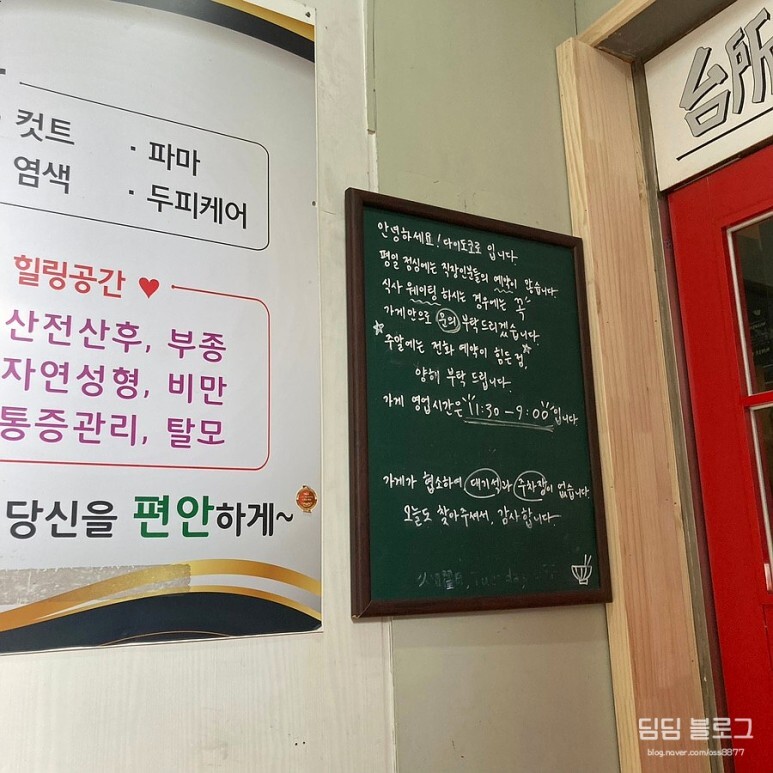 · 컷트
· 파마
염색
· 두피케어
힐링공간 ♥
산전산후, 부종
자연성형, 비만
통증관리, 탈모
당신을 편안하게~
안녕하세요! 다이도코로 입니다.
평일 점심에는 직장인분들의 예약이 많습니다.
식사 웨이팅 하시는 경우에는 꼭
가게안으로 문의 부탁드리겠습니다.
주말에는 전화 예약이 힘든점,
양해 부탁 드립니다.
가게 영업시간은 11:30 - 9:00 입니다.
가게가 협소하여 대기석과 주차장이 없습니다.
오늘도 찾아주셔서, 감사합니다.
台所
딤딤 블로그
blog.naver.com/oss8877